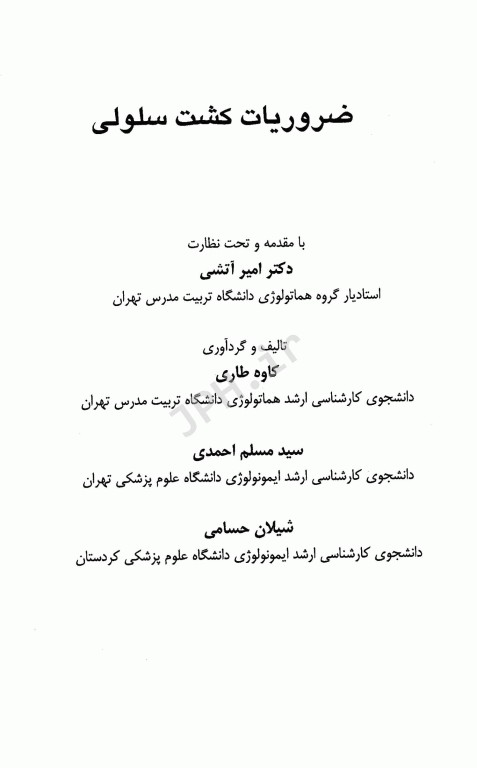 ضروریات کشت سلولی
با مقدمه و تحت نظارت
دکتر امیر آتشی
استادیار گروه هماتولوژی دانشگاه تربیت مدرس تهران
تالیف و گردآوری
کاوه طاری
دانشجوی کارشناسی ارشد هماتولوژی دانشگاه تربیت مدرس تهران
سید مسلم احمدی
دانشجوی کارشناسی ارشد ایمونولوژی دانشگاه علوم پزشکی تهران
شیلان حسامی
دانشجوی کارشناسی ارشد ایمونولوژی دانشگاه علوم پزشکی کردستان
JPH.ir